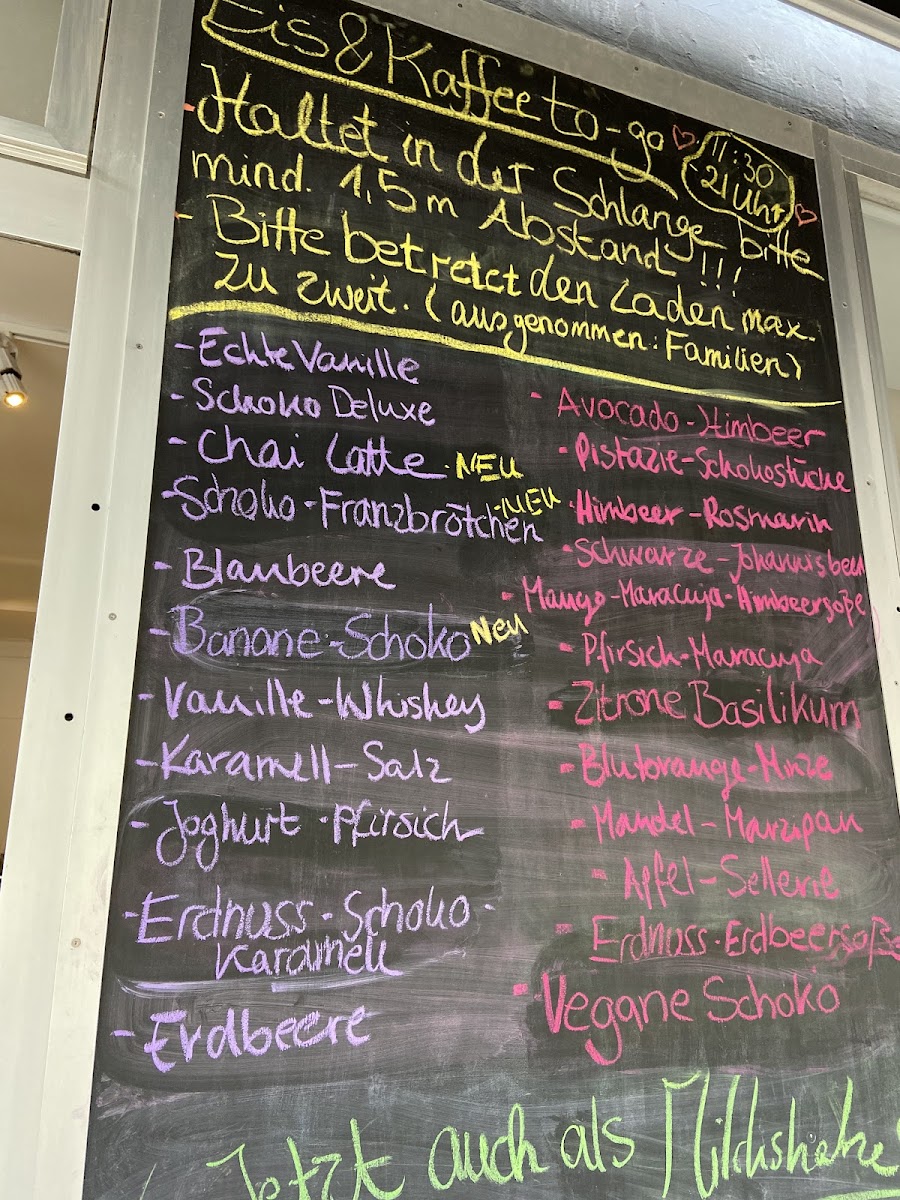 Eis & Kaffee to-go
11:30
21 Uhr
- Haltet in der Schlange bitte
mind. 1,5 m Abstand!!!
- Bitte betretet den Laden max.
zu zweit. (ausgenommen: Familien)
- Echte Vanille
- Schoko Deluxe
- Chai Latte · NEU
- Schoko-Franzbrötchen · NEU
- Blaubeere
- Banane-Schoko Neu
- Vanille-Whiskey
- Karamell-Salz
- Joghurt-Pfirsich
- Erdnuss-Schoko-
Karamell
- Erdbeere
- Avocado-Himbeer
- Pistazie-Schokostücke
- Himbeer-Rosmarin
- Schwarze-Johannisbeer
- Mango-Maracuja-Himbeersoße
- Pfirsich-Maracuja
- Zitrone Basilikum
- Blutorange-Minze
- Mandel-Marzipan
- Apfel-Sellerie
- Erdnuss-Erdbeersoße
- Vegane Schoko
Jetzt auch als Milchshake